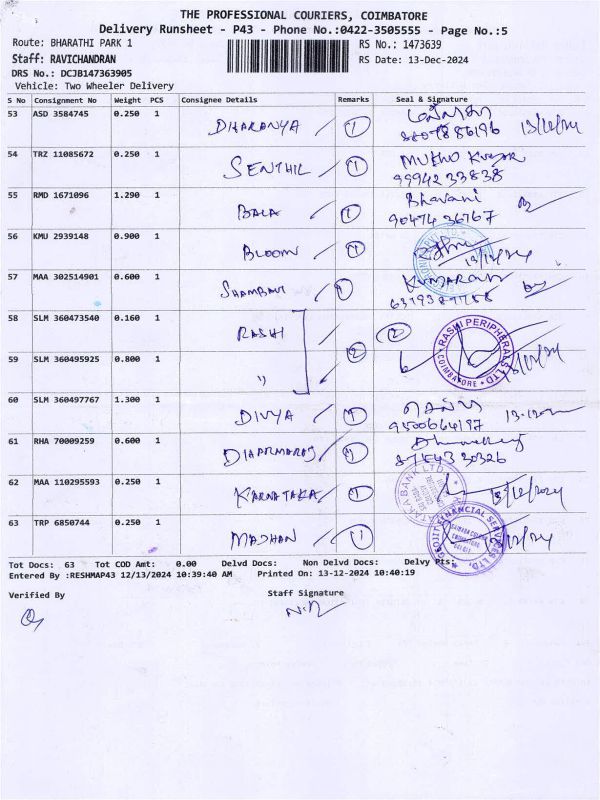 THE PROFESSIONAL COURIERS, COIMBATORE
Delivery Runsheet - P43 - Phone No.:0422-3505555 - Page No.:5
Route: BHARATHI PARK 1 RS No.: 1473639
Staff: RAVICHANDRAN RS Date: 13-Dec-2024
DRS No.: DCJB147363905
Vehicle: Two Wheeler Delivery
S No Consignment No Weight PCS Consignee Details Remarks Seal & Signature
53 ASD 3584745 0.250 1 DHARANYA 1 13/12/24
54 TRZ 11085672 0.250 1 SENTHIL 1 Mutho Kumar
99942 33838
55 RMD 1671096 1.290 1 BALA 1 Bhavani
90474 36767
56 KMU 2939148 0.900 1 BLOOM 1 13/12/24
57 MAA 302514901 0.600 1 SHAMBAVI 1 KUMARAN
58 SLM 360473540 0.160 1 RASHI 2 2 RASHI PERIPHERALS LTD COIMBATORE
59 SLM 360495925 0.800 1 "
13/12/24
60 SLM 360497767 1.300 1 DIVYA 1
9500664197
61 RHA 70009259 0.600 1 DHARMARAJ 1
87543 30326
62 MAA 110295593 0.250 1 KARNATAKA 1 13/12/24
63 TRP 6850744 0.250 1 MADHAN 1 GEOJIT FINANCIAL SERVICES LTD.
Tot Docs: 63 Tot COD Amt: 0.00 Delvd Docs: Non Delvd Docs: Delvy Pts:
Entered By :RESHMAP43 12/13/2024 10:39:40 AM Printed On: 13-12-2024 10:40:19
Verified By Staff Signature